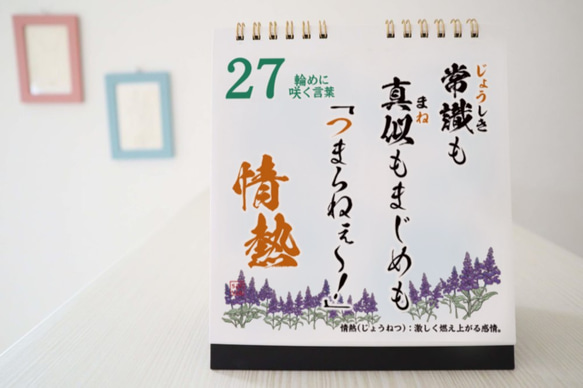 27
輪めに
咲く言葉
常識も
じょうしき
真似もまじめも
まね
「つまらねぇ〜！」
情熱
情熱(じょうねつ)：激しく燃え上がる感情。